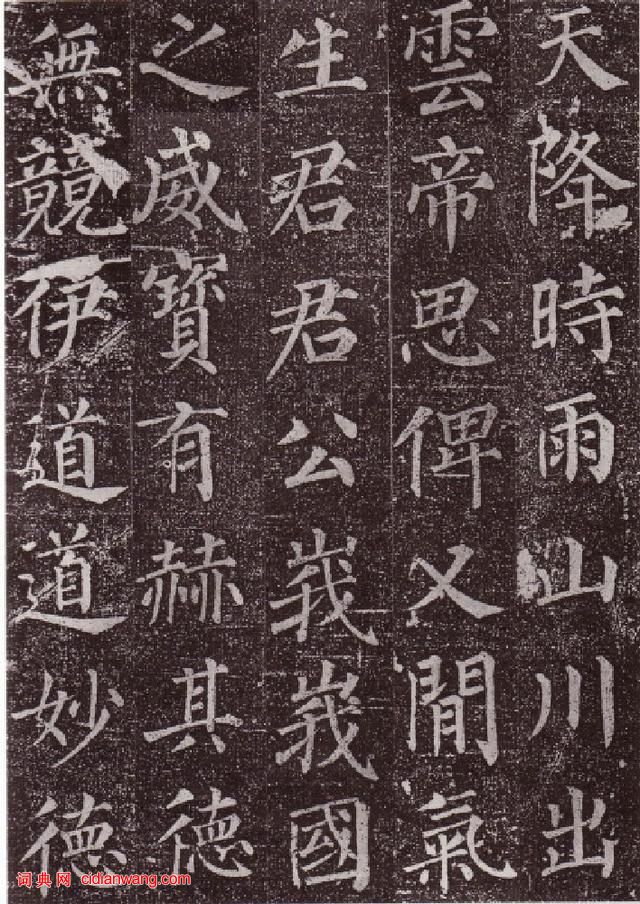 天降時雨山川出
雲帝思俾乂閒氣
生君君公峩峩國
之威寶有赫其德
無競伊道道妙德
词典网 cidianwang.com